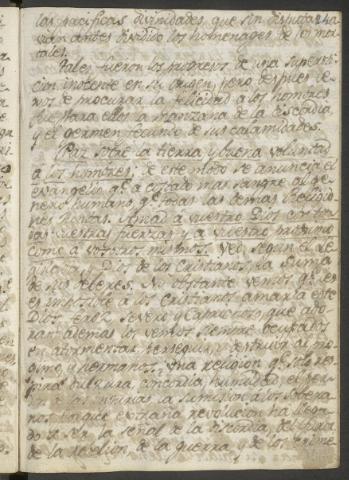 las pacificas divinidades, que sin disputa ha
vian antes dividido los homenages de los mor
tales.
Tales fueron los progresos de una supersti
cion inocente en su origen, pero despues le
xos de procurar la felicidad a los hombres
fue para ellos la manzana de la discordia
y el germen fecundo de sus calamidades.
Paz sobre la tierra y buena voluntad
a los hombres: de este modo se anuncia el
evangelio qe. a costado mas sangre al ge
nero humano, qe. todas las demas religio
nes juntas. Amad a vuestro Dios con to
das vuestras fuerzas y a vuestro proximo
como a vosotros mismos. Ved segun el
y Dios de los cristianos, la suma
de sus deberes. No obstante vemos qe. les
es imposible a los cristianos amar a este
Dios feroz severo y caprichoso que ado
ran; ademas los vemos siempre ocupados
en atormentar, perseguir, y destruir al pro
gimo, y hermanos. Una religion qe. solo res
pira dulzura, concordia, humildad, el per
don de las injurias, la sumision a los sobera
nos, por que extraña revolucion ha llega
do a ser la señal de la discordia, del furor,
de la rebelion, de la guerra, y de los crime